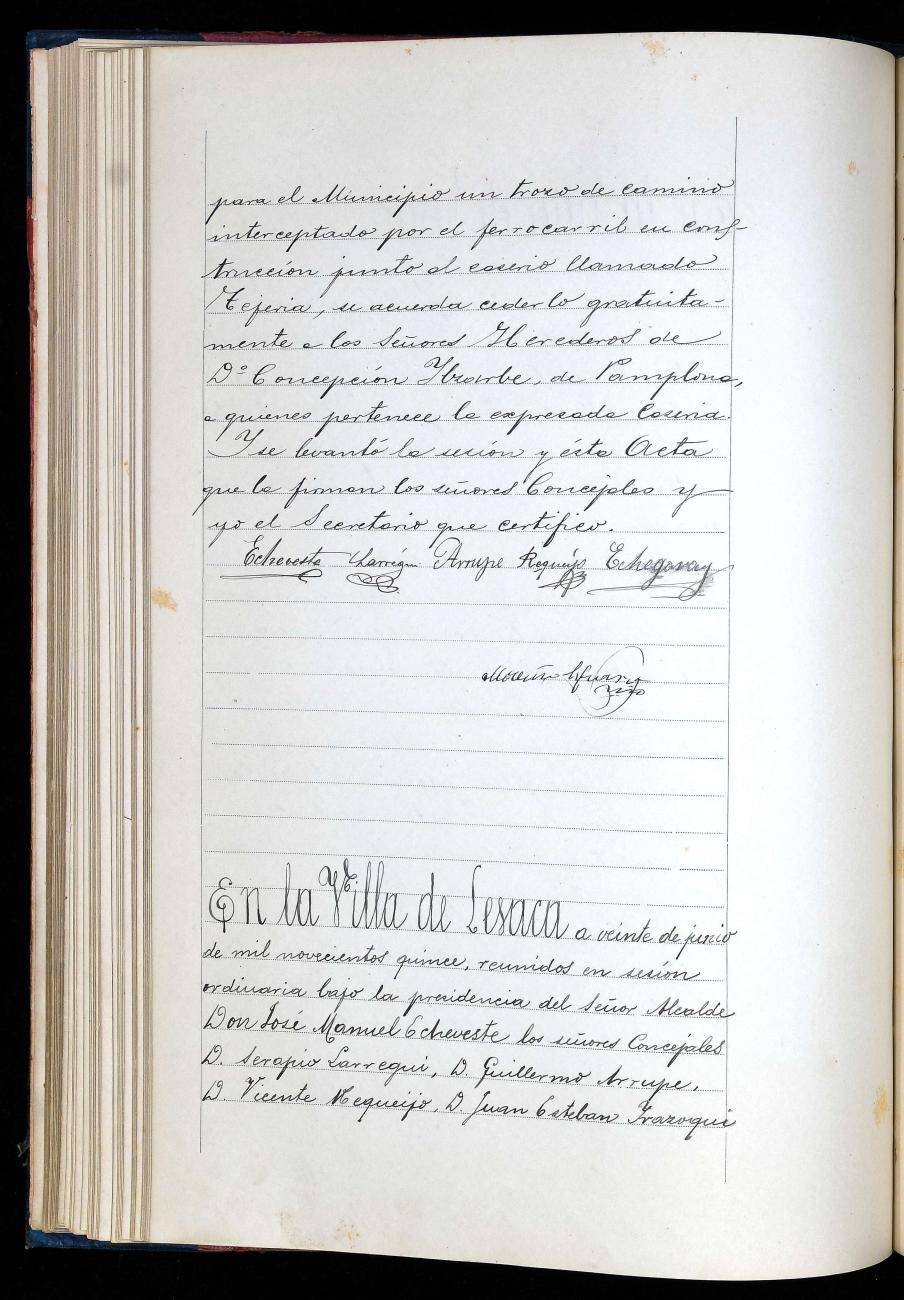 para el Municipio un trozo de camino
interceptado por el ferrocarril en cons-
trucción junto al caserio llamado
Tejeria, se acuerda cederlo gratuita-
mente a los Señores Herederos de
Dª Concepción Ybarbe, de Pamplona,
a quienes pertenece la expresada Caseria.
Y se levantó la sesión y ésta Acta
que la firman los señores Concejales y
yo el Secretario que certifico.
Echeveste Larregui Arrupe Requijo Echegaray
En la Villa de Lesaca a veinte de junio
de mil novecientos quince, reunidos en sesión
ordinaria bajo la presidencia del Señor Alcalde
Don José Manuel Echeveste los señores Concejales
D. Serapio Larregui, D. Guillermo Arrupe,
D. Vicente Requeijo, D. Juan Esteban Irazoqui